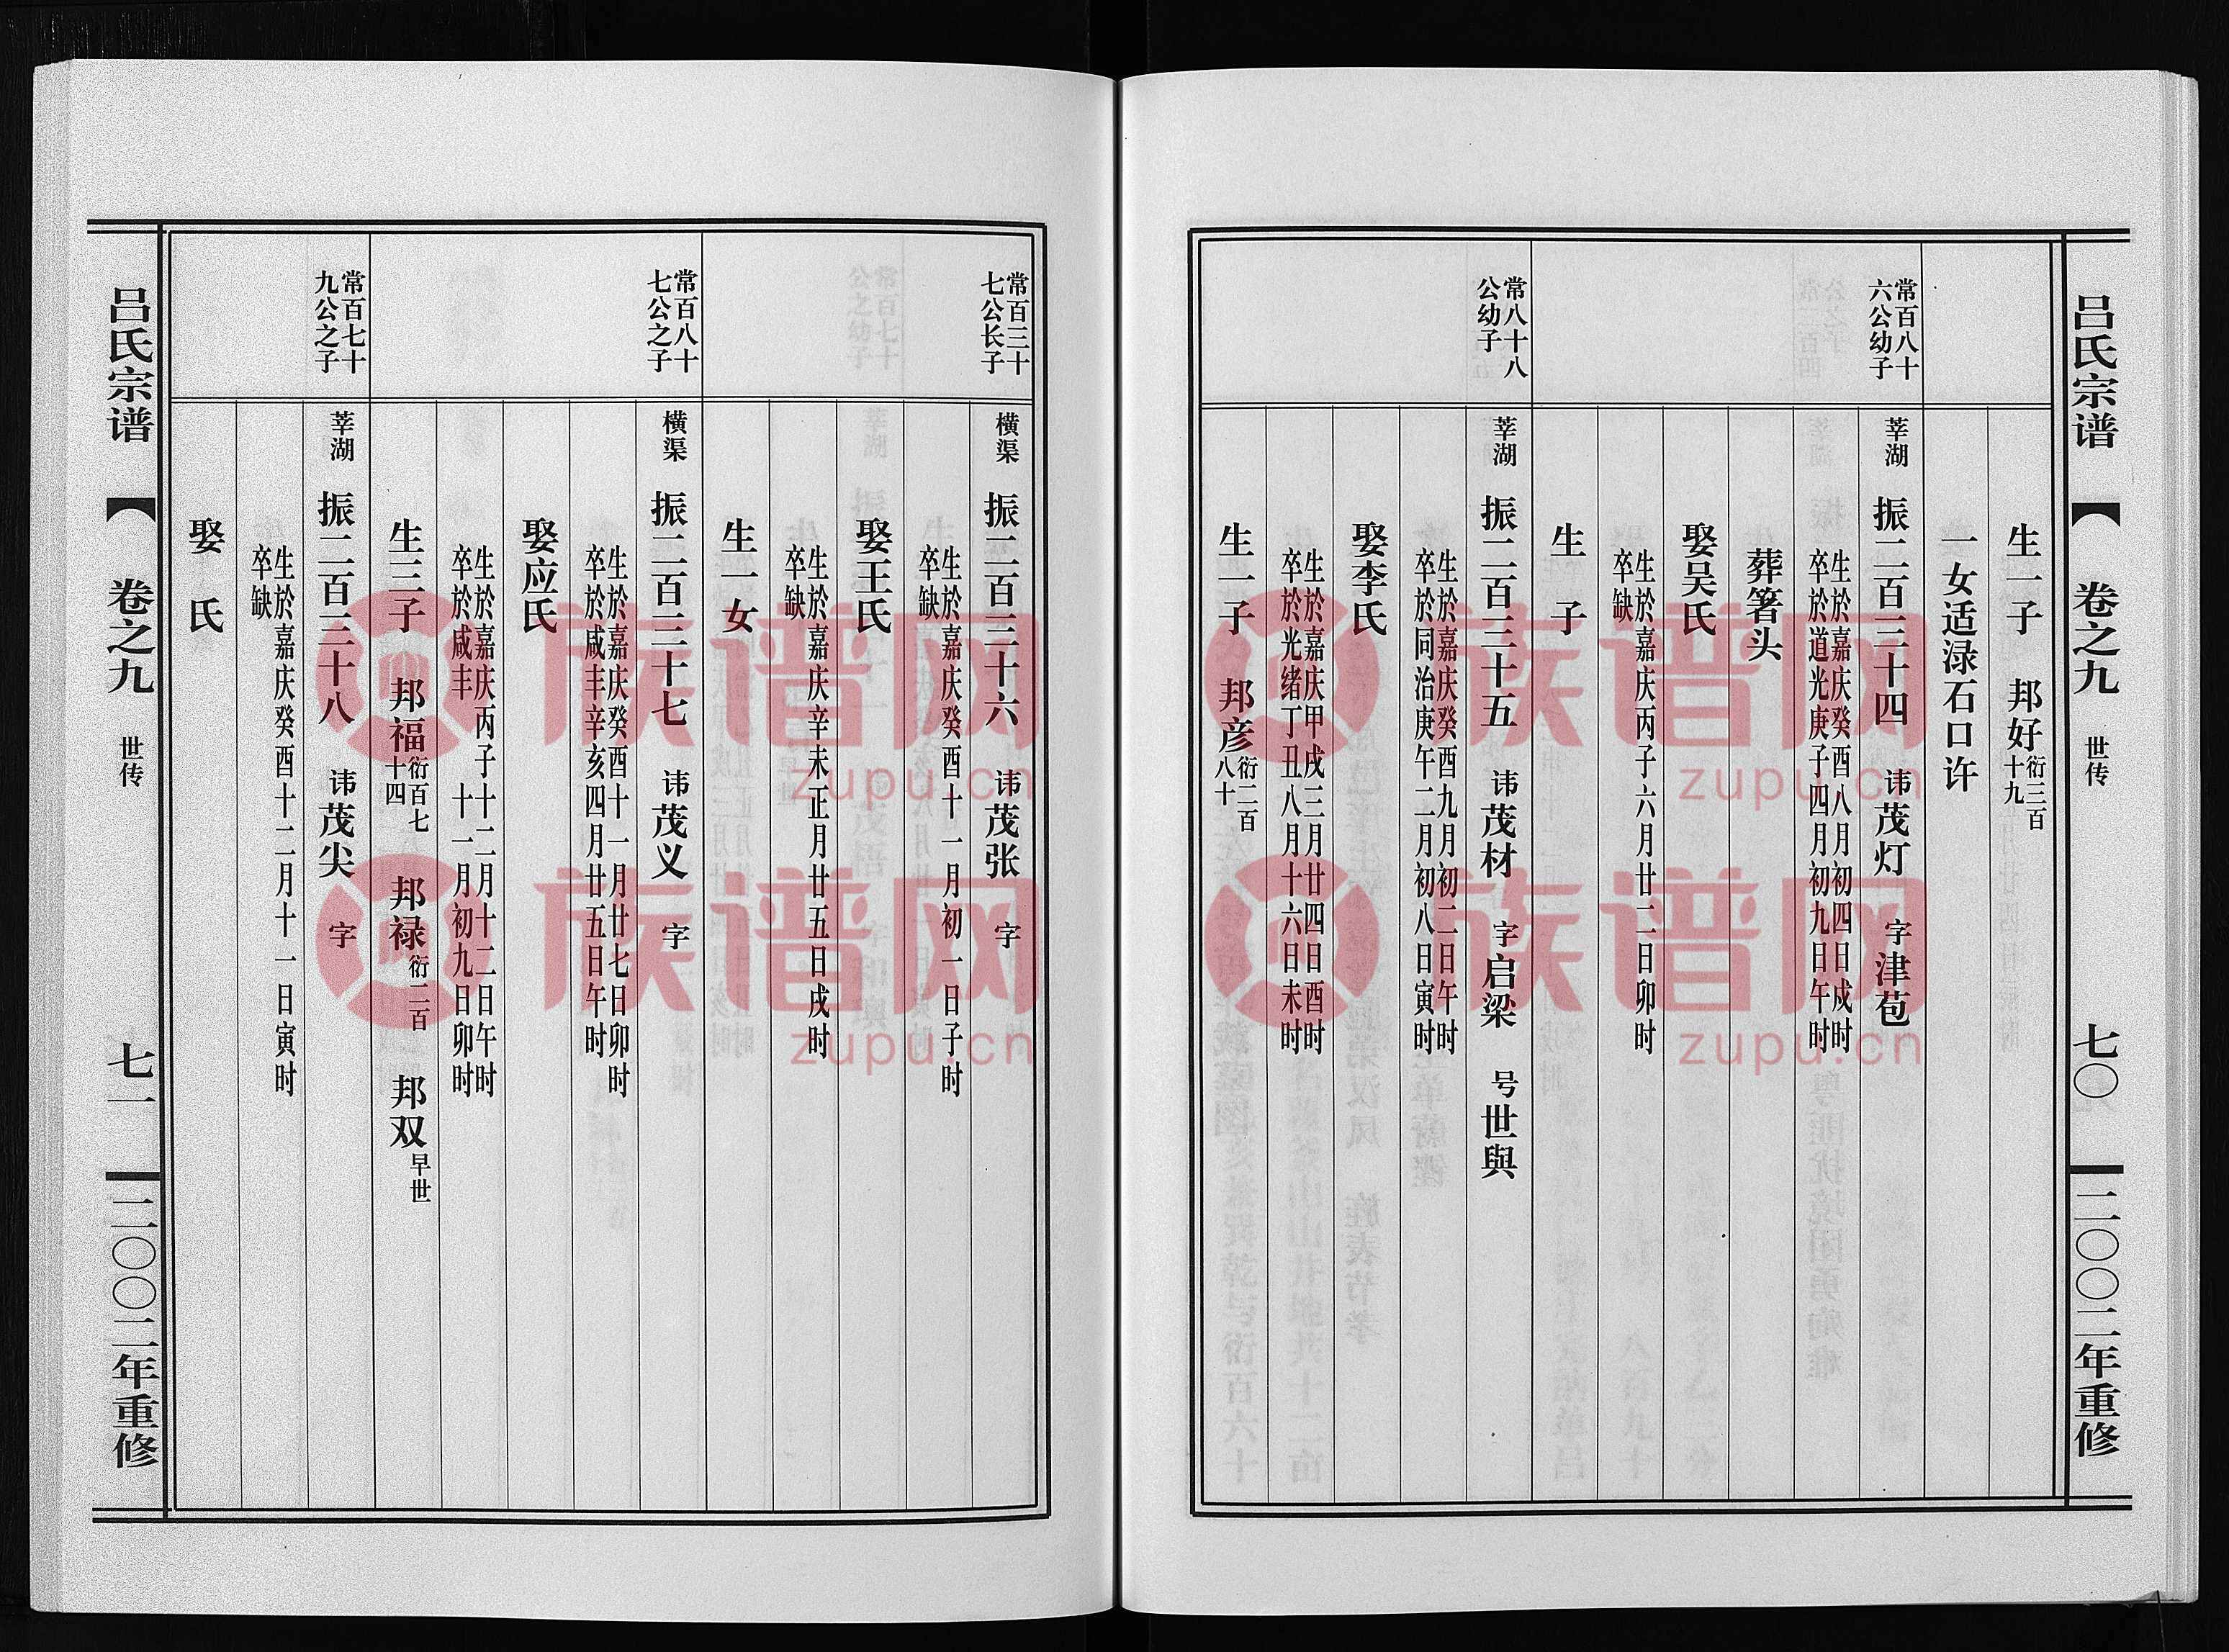 吕氏宗谱 【 卷之九 世传 七〇 二〇〇二年重修
生一子 邦好 衍三百十九
一女适渌石口许
常百八十六公幼子
莘湖 振二百三十四 讳茂灯 字津苞
生於嘉庆癸酉八月初四日戌时
卒於道光庚子四月初九日午时
葬箸头
娶吴氏
生於嘉庆丙子六月廿二日卯时
卒缺
生 子
常八十八公幼子
莘湖 振二百三十五 讳茂材 字启梁 号世與
生於嘉庆癸酉九月初二日午时
卒於同治庚午二月初八日寅时
娶李氏
生於嘉庆甲戌三月廿四日酉时
卒於光绪丁丑八月十六日未时
生一子 邦彦 衍二百八十
常百三十七公长子
横渠 振二百三十六 讳茂张 字
生於嘉庆癸酉十一月初一日子时
卒缺
娶王氏
生於嘉庆辛未正月廿五日戌时
卒缺
生一女
常百八十七公之子
横渠 振二百三十七 讳茂义 字
生於嘉庆癸酉十一月廿七日卯时
卒於咸丰辛亥四月廿五日午时
娶应氏
生於嘉庆丙子十二月十二日午时
卒於咸丰 十一月初九日卯时
生三子 邦福 衍百七十四 邦禄 衍二百 邦双 早世
常百七十九公之子
莘湖 振二百三十八 讳茂尖 字
生於嘉庆癸酉十二月十一日寅时
卒缺
娶 氏
吕氏宗谱 【 卷之九 世传 七一 二〇〇二年重修
族谱网
zupu.cn
族谱网
zupu.cn
族谱网
zupu.cn
族谱网
zupu.cn